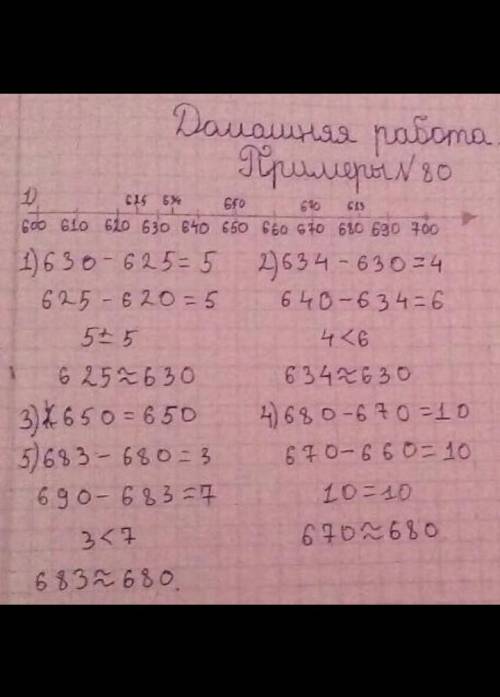 Домашняя работа.
Примеры №80
1) 625 634 650 670 683
600 610 620 630 640 650 660 670 680 690 700
1) 630 - 625 = 5 2) 634 - 630 = 4
625 - 620 = 5 640 - 634 = 6
5 = 5 4 < 6
625 ≈ 630 634 ≈ 630
3) 650 = 650 4) 680 - 670 = 10
5) 683 - 680 = 3 670 - 660 = 10
690 - 683 = 7 10 = 10
3 < 7 670 ≈ 680
683 ≈ 680.